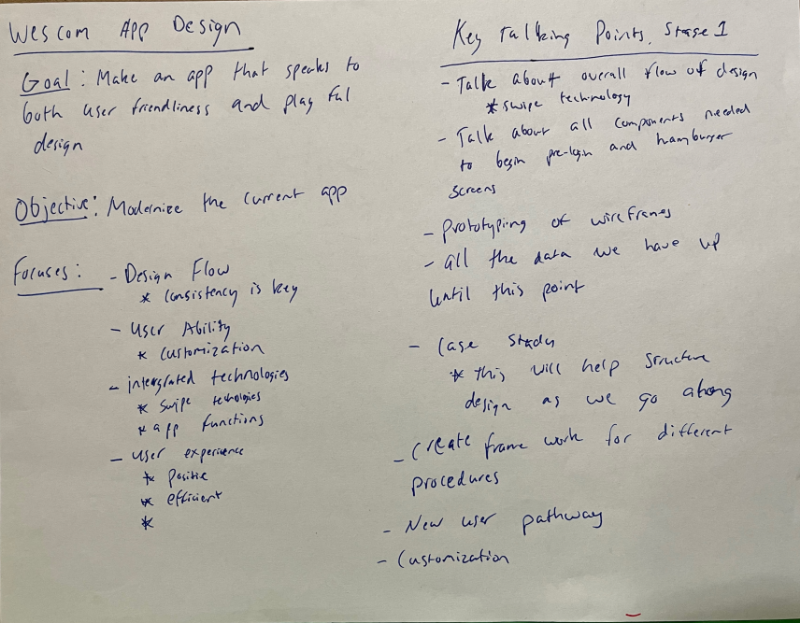 Wescom App Design
Goal: Make an app that speaks to
both user friendliness and playful
design
Objective: Modernize the current app
Focuses: - Design Flow
* consistency is key
- User Ability
* customization
- intergrated technologies
* swipe techologies
* app functions
- User experience
* positive
* efficient
*
Key Talking Points. Stage 1
- Talk about overall flow of design
* swipe technology
- Talk about all components needed
to begin pre-login and hamburger
screens
- Prototyping of wireframes
- all the data we have up
until this point
- Case study
* this will help structure
design as we go along
- Create frame work for different
procedures
- New user pathway
- Customization